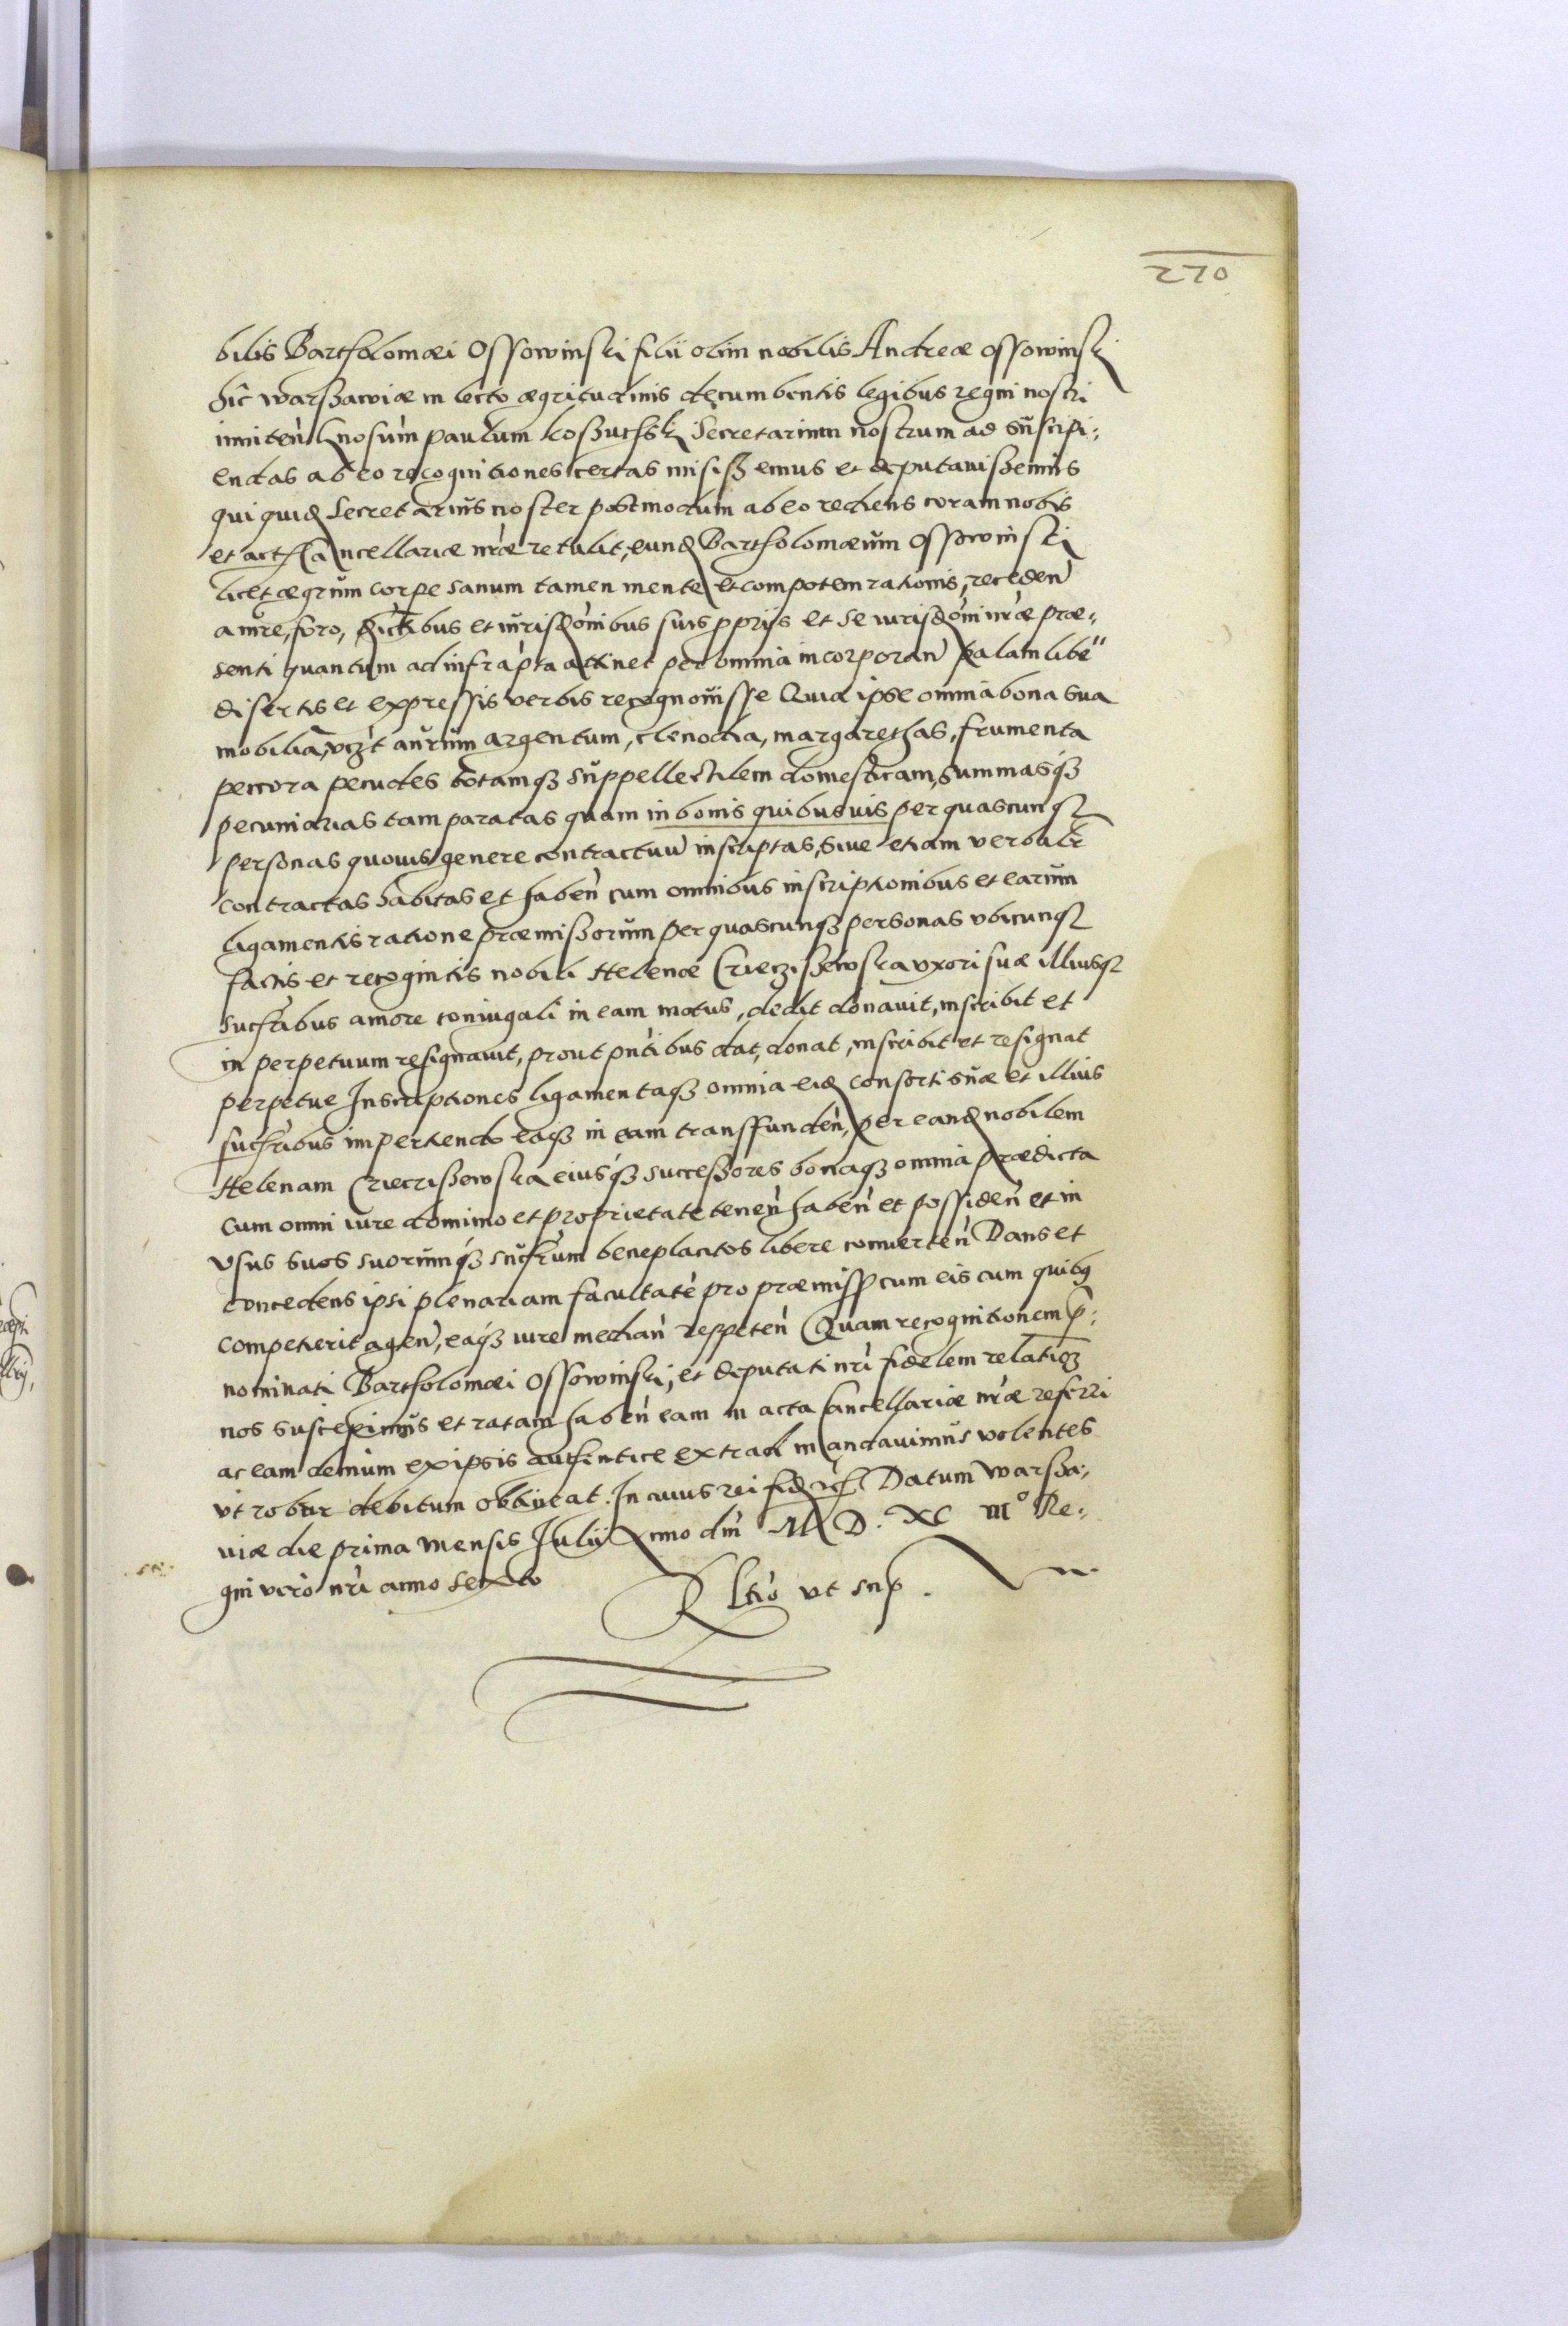 270
bilis Bartholomæi Ossowinski filii olim nobilis Andreæ Ossowinski
hic Warszawiæ in lecto ægritudinis decumbentis legibus regni nostri
inniteñ Gnosum Paulum Koszuthski Secretarium nostrum ad suscipi-
endas ab eo recognitiones certas misissemus et deputavissemus
qui quid Secretarius noster postmodum ab eo rediens coram nobis
et act Cancellariæ nræ retulit, eund Bartholomæum Ossowinski
licet ægrum corpe sanum tamen mente et compotem rationis, receden
a iure, foro, et iurisdonibus suis pprijs et se iurisdoni nræ præ-
senti quantum ad infrapta attinet per omnia incorporan palam libe
disertis et expressis verbis recognovisse Quia ipse omnia bona sua
mobilia, vczt aurum argentum, clenodia, margarethas, frumenta
peccora pecudes totamq suppellectilem domesticam, summasq
pecuniarias tam paratas quam in bonis quibusvis per quascunq
personas quovis genere contractuu inscriptas, sive etiam verbalr
contractas habitas et haben cum omnibus inscriptionibus et earum
ligamentis ratione præmissorum per quascunq personas vbicunq
factis et recognitis nobili Helenæ Crieczissewska vxori suæ illiusq
succribus amore coniugali in eam motus, dedit donavit, inscribit et
in perpetuum resignavit, prout pntibus dat, donat, inscribit et resignat
perpetue Inscriptiones ligamentaq omnia eid consorti suæ et illius
succribus impertiendo eaq in eam transfunden, per eand nobilem
Helenam Criecrissewska eiusq successores bonaq omnia prædicta
cum omni iure dominio et proprietate tenen haben et possiden et in
vsus suos suorumq succrum beneplacitos libere converten Dans et
concedens ipsi plenariam facultate pro præmiss cum eis cum quibq
competierit agen, eaq iure median reppeten Quam recognitionem p-
nominati Bartholomæi Ossowinski, et deputati nri fidelem relatioz
nos suscepimus et ratam haben eam in acta Cancellariæ nræ referri
ac eam demum ex ipsis authentice extrad mandavimus volentes
vt robur debitum obtineat. In cuius rei fid Datum Warsza-
viæ die prima mensis Julij Anno dni M D. XC IIIº Re-
gni vero nri anno sexto
Rltio vt sup.